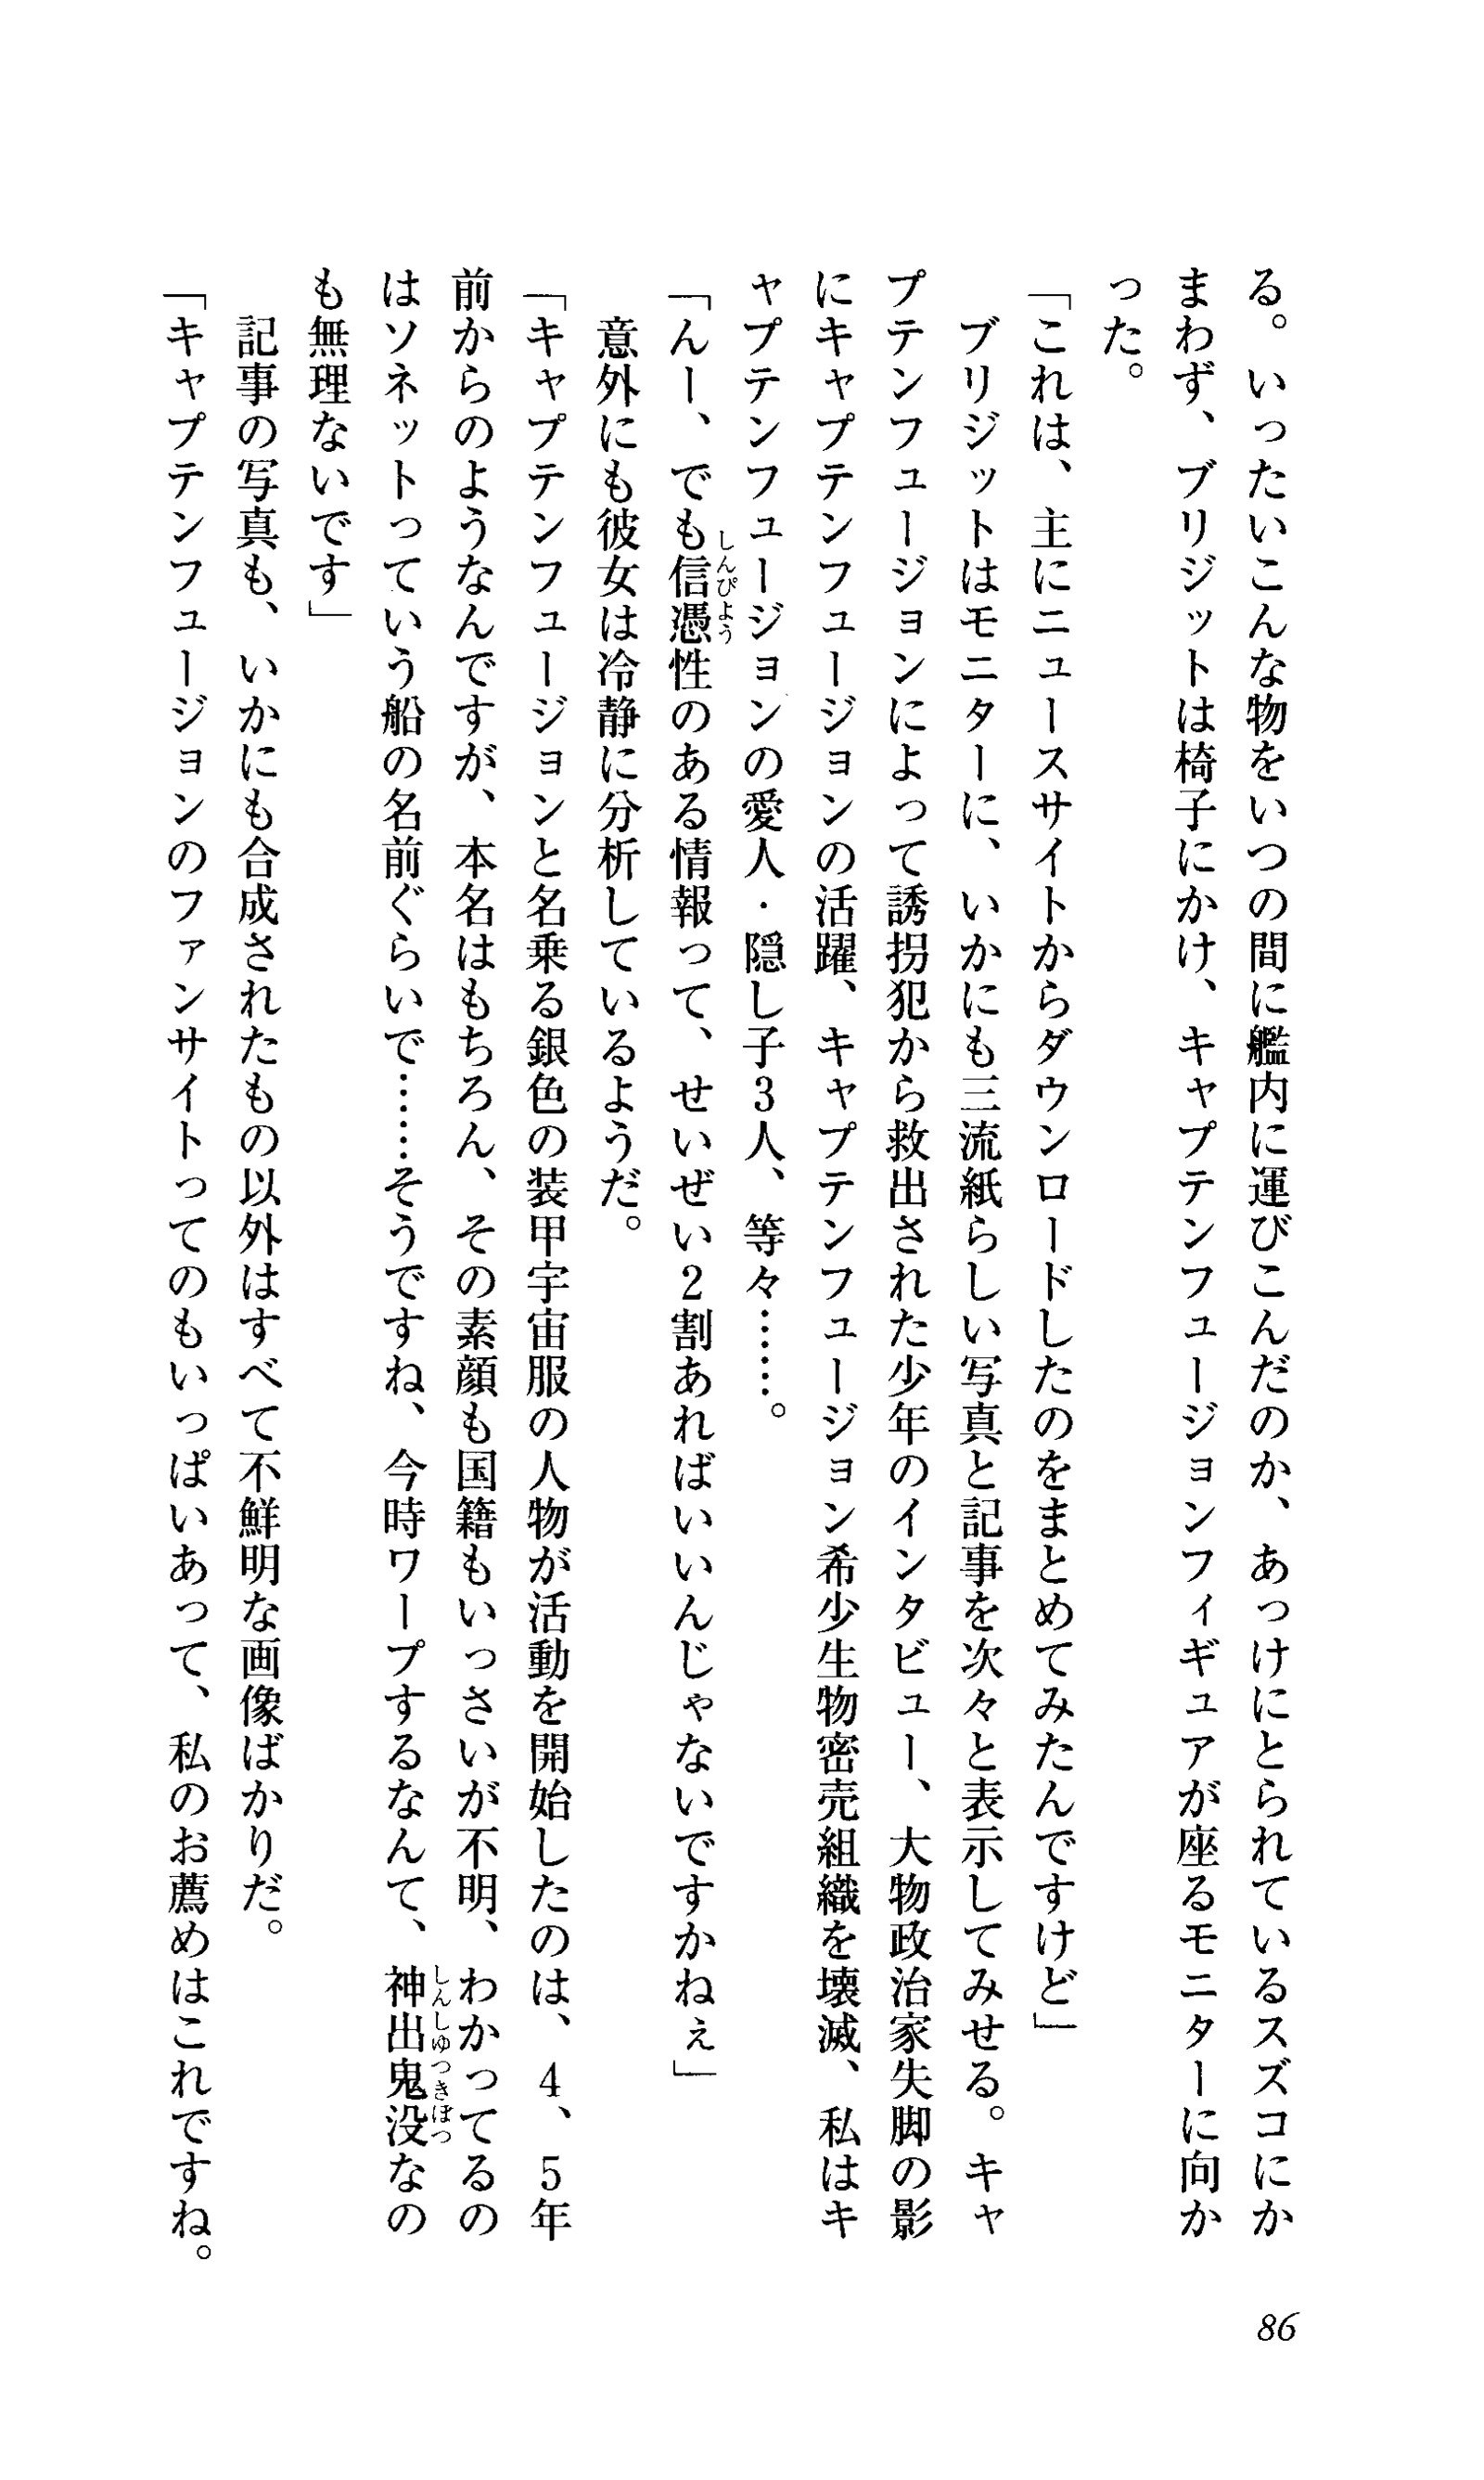 る。いったいこんな物をいつの間に艦内に運びこんだのか、あっけにとられているスズコにか
まわず、ブリジットは椅子にかけ、キャプテンフュージョンフィギュアが座るモニターに向か
った。
「これは、主にニュースサイトからダウンロードしたのをまとめてみたんですけど」
　ブリジットはモニターに、いかにも三流紙らしい写真と記事を次々と表示してみせる。キャ
プテンフュージョンによって誘拐犯から救出された少年のインタビュー、大物政治家失脚の影
にキャプテンフュージョンの活躍、キャプテンフュージョン希少生物密売組織を壊滅、私はキ
ャプテンフュージョンの愛人・隠し子3人、等々……。
「んー、でも信憑性のある情報って、せいぜい2割あればいいんじゃないですかねぇ」
しんぴよう
　意外にも彼女は冷静に分析しているようだ。
「キャプテンフュージョンと名乗る銀色の装甲宇宙服の人物が活動を開始したのは、4、5年
前からのようなんですが、本名はもちろん、その素顔も国籍もいっさいが不明、わかってるの
はソネットっていう船の名前ぐらいで……そうですね、今時ワープするなんて、神出鬼没なの
しんしゆつきぼつ
も無理ないです」
　記事の写真も、いかにも合成されたもの以外はすべて不鮮明な画像ばかりだ。
「キャプテンフュージョンのファンサイトってのもいっぱいあって、私のお薦めはこれですね。
86